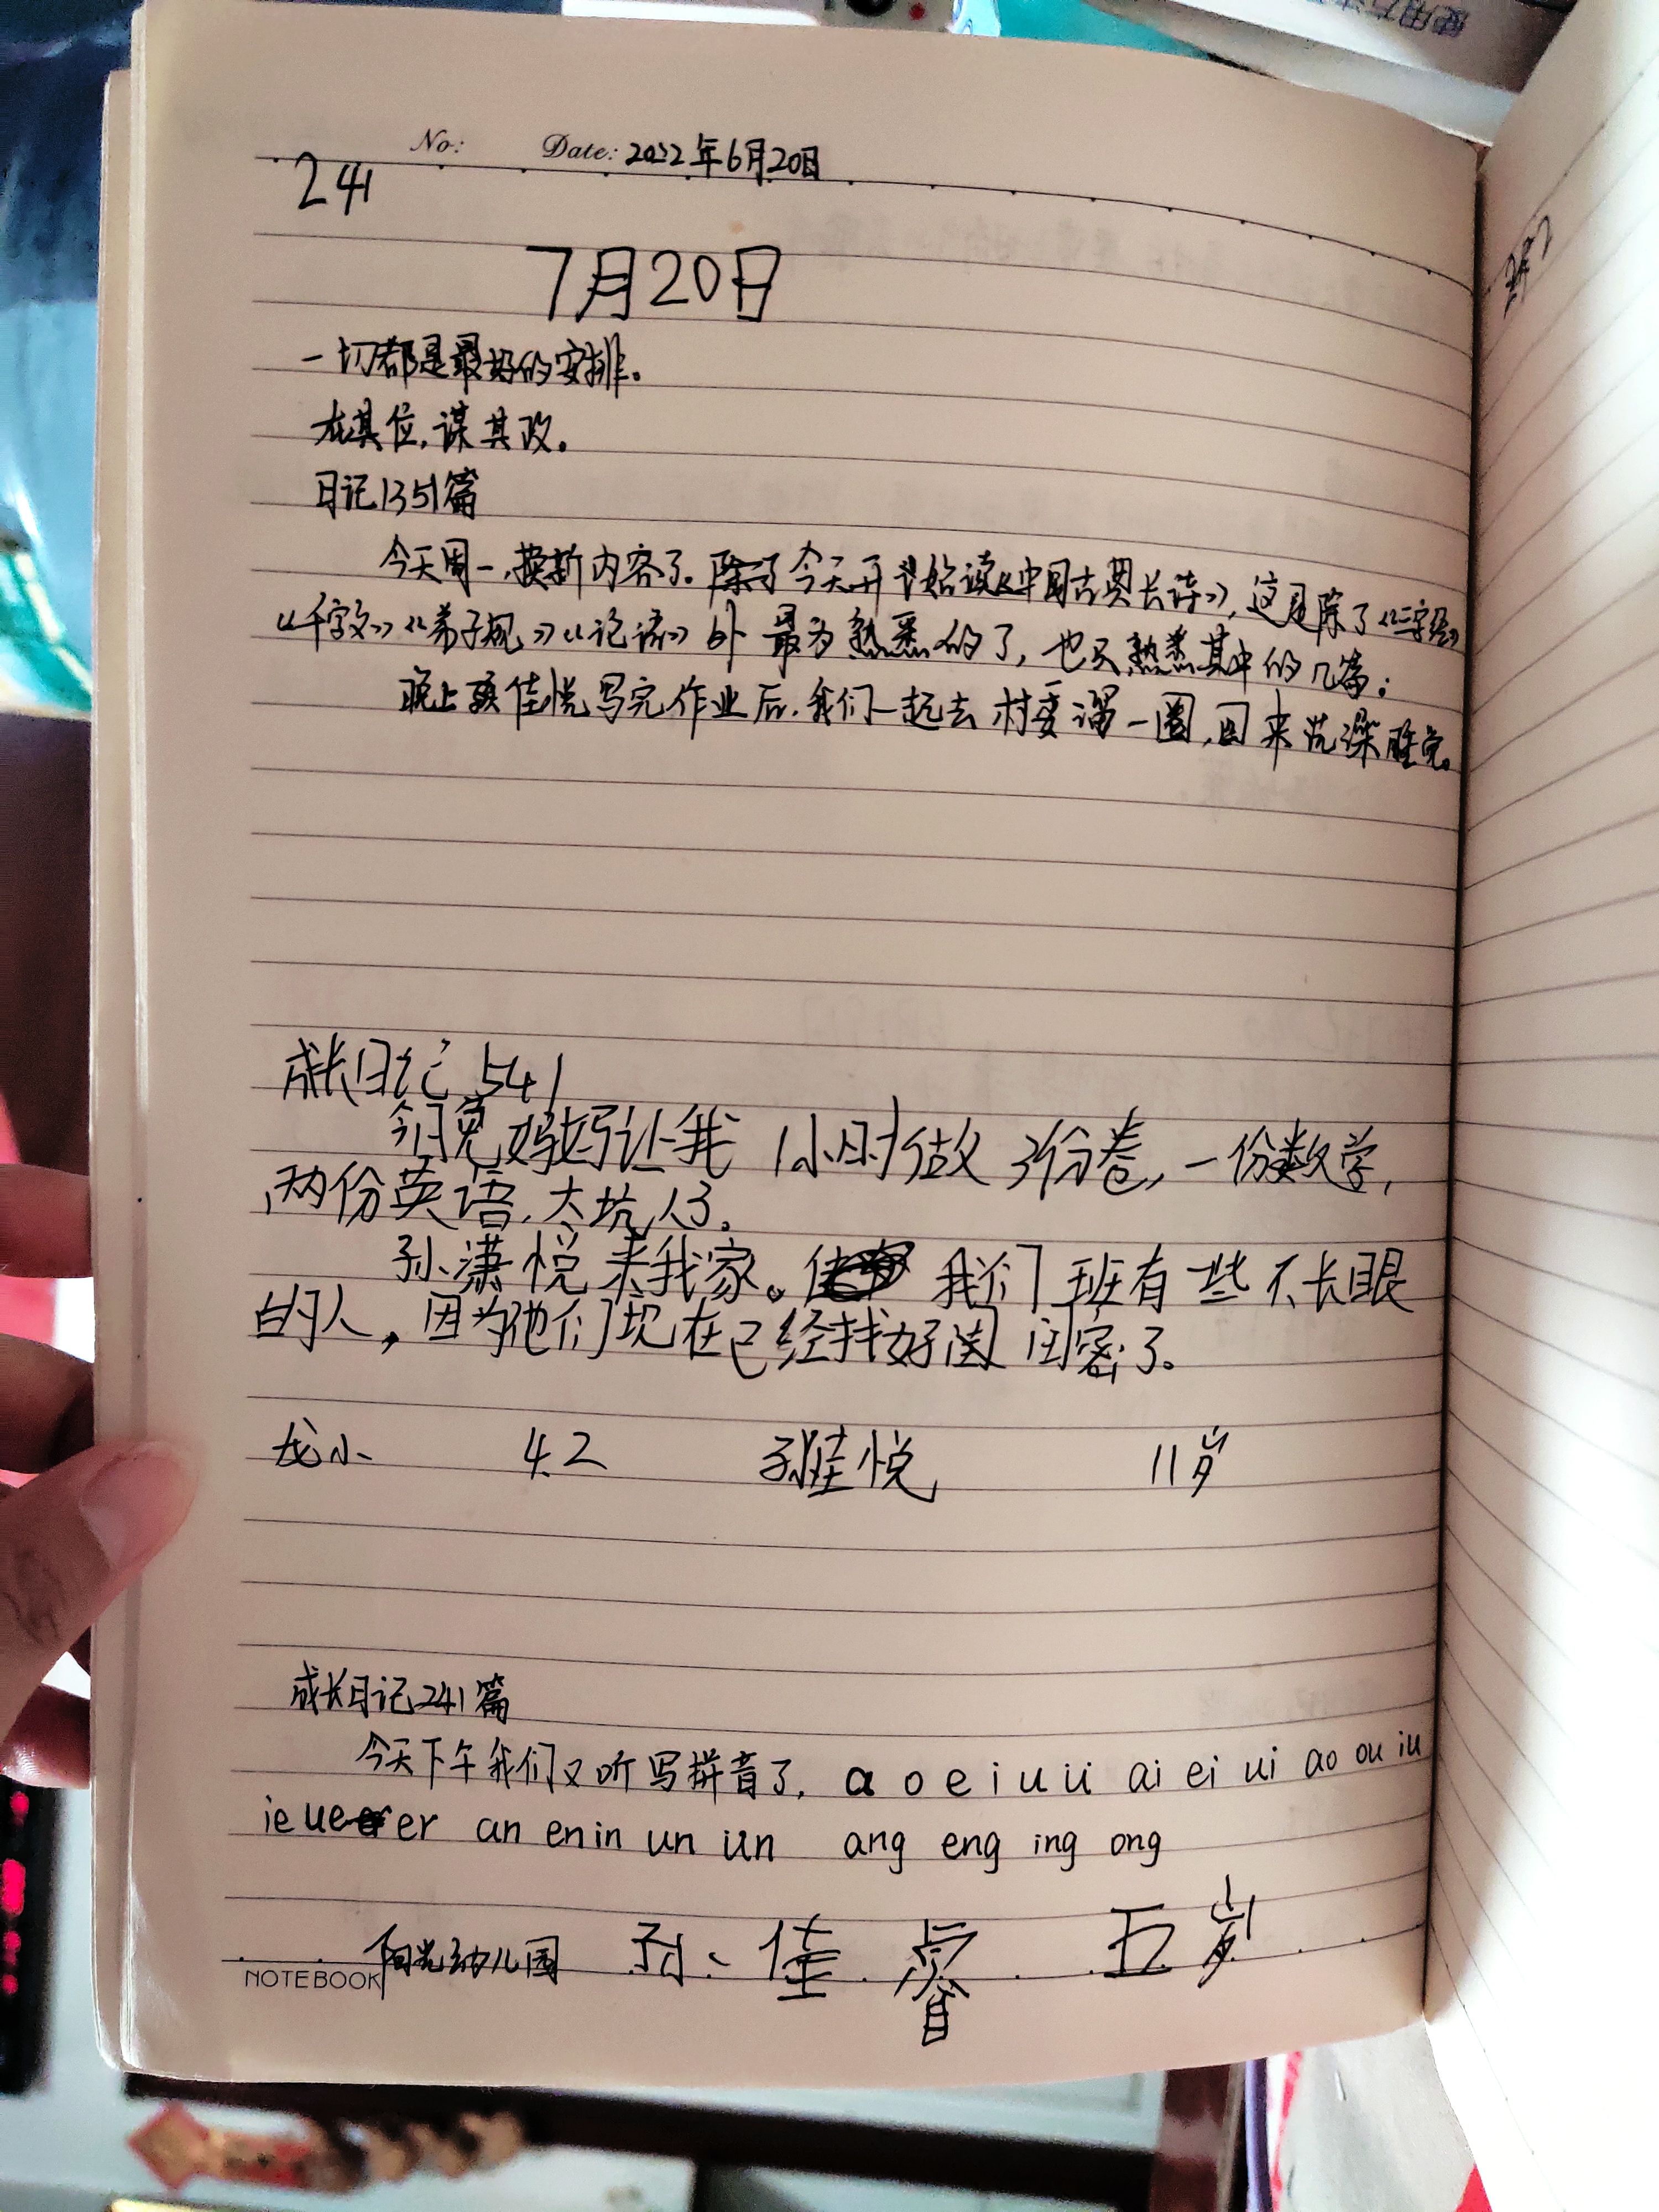 No: Date: 2022年6月20日
241
7月20日
一切都是最好的安排。
在其位,谋其政。
日记1351篇
今天周一,换新内容了。除了今天开始读《中国古典长诗》,这是除了《三字经》
《千字文》《弟子规》《论语》外最为熟悉的了,也只熟悉其中的几篇;
晚上 佳悦写完作业后,我们一起去村委溜一圈,回来洗澡睡觉。
成长日记 541
今日 妈妈让我1小时做3份卷,一份数学,
两份英语,太坑人了。
孙潇悦来我家。我们班有些不长眼
的人,因为他们现在已经找好闺闺密了。
龙小 4.2 孙佳悦 11岁
成长日记241篇
今天下午我们又听写拼音了, a o e i u ü ai ei ui ao ou iu
ie ue er an en in un ün ang eng ing ong
阳光幼儿园 孙佳睿 五岁
NOTEBOOK